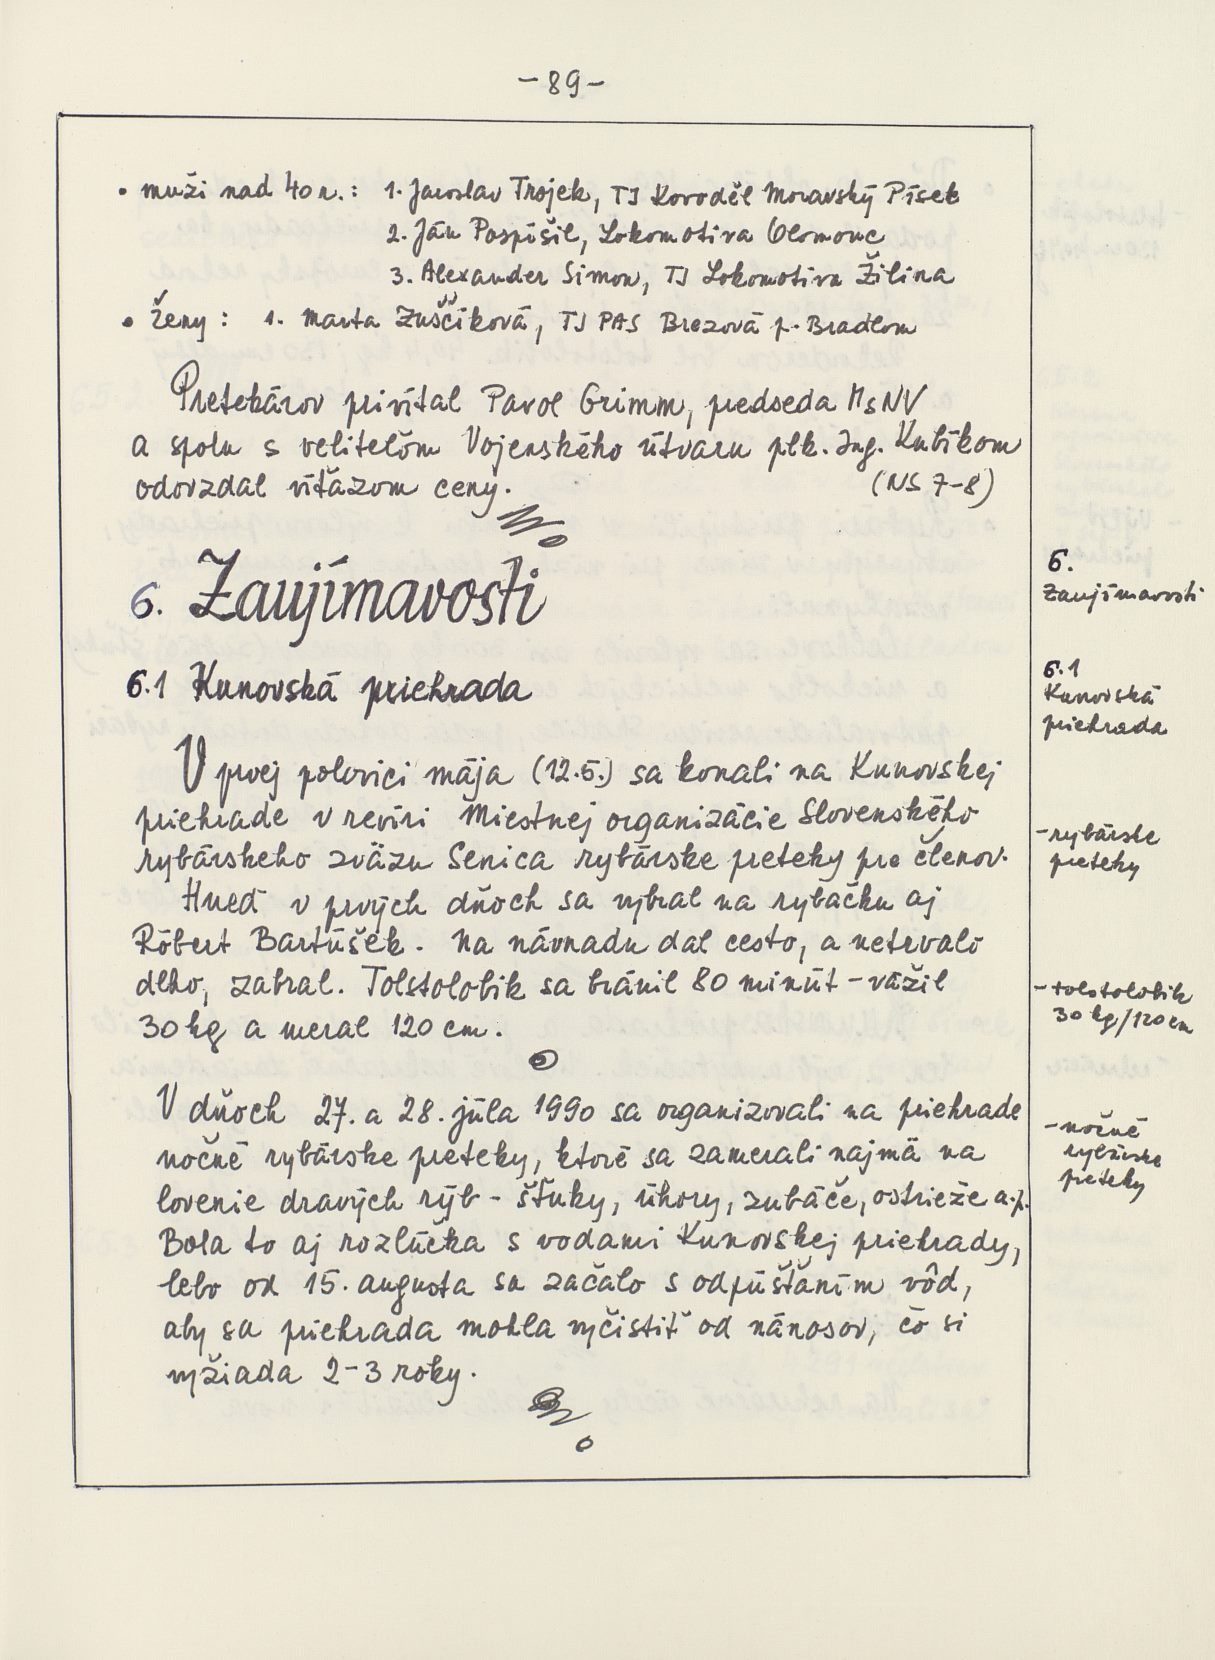 - 89 -
• muži nad 40 r.: 1. Jaroslav Trojek, TJ Kovoděl Moravský Písek
2. Ján Pospíšil, Lokomotiva Olomouc
3. Alexander Simon, TJ Lokomotiva Žilina
• ženy: 1. Marta Zuščíková, TJ PAS Brezová p. Bradlom
Pretekárov privítal Pavol Grimm, predseda MsNV
a spolu s veliteľom Vojenského útvaru plk. Ing. Kubíkom
odovzdal víťazom ceny. (NS 7-8)
6. Zaujímavosti
6.
Zaujímavosti
6.1 Kunovská priehrada
6.1
Kunovská
priehrada
V prvej polovici mája (12.5.) sa konali na Kunovskej
priehrade v revíri Miestnej organizácie Slovenského
rybárskeho zväzu Senica rybárske preteky pre členov.
- rybárske
preteky
Hneď v prvých dňoch sa vybral na rybačku aj
Róbert Bartúšek. Na návnadu dal cesto, a netrvalo
dlho, zabral. Tolstolobik sa bránil 80 minút - vážil
30 kg a meral 120 cm.
- tolstolobik
30 kg/120 cm
V dňoch 27. a 28. júla 1990 sa organizovali na priehrade
nočné rybárske preteky, ktoré sa zamerali najmä na
lovenie dravých rýb - šťuky, úhory, zubáče, ostrieže a.p.
Bola to aj rozlúčka s vodami Kunovskej priehrady,
lebo od 15. augusta sa začalo s odpúšťaním vôd,
aby sa priehrada mohla vyčistiť od nánosov, čo si
vyžiada 2-3 roky.
- nočné
rybárske
preteky